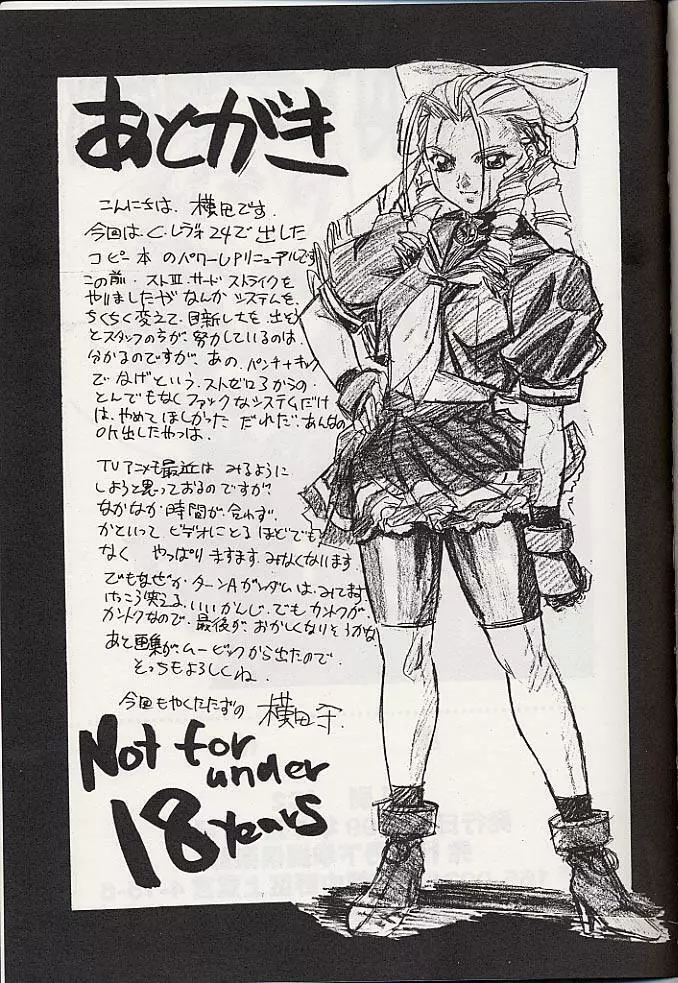 あとがき
こんにちは、横田です。
今回は、C.レヴォ24で出した
コピー本のパワーUPリニューアルです
この前、ストⅢ.サードストライクを
やりましたがなんかシステムを、
ちくちく変えて、目新しさを、出そう
とスタッフの方が、努力しているのは、
分かるのですが、あの、パンチ+キック
でなげという、ストゼロ3からの、
とんでもなくファックなシステムだけ
は、やめてほしかった だれだ、あんなの
OK出したやつは、
TVアニメも最近は みるように
しようと思っておるのですが、
なかなか時間が、合わず、
かといって ビデオにとる ほどでも
なく やっぱり ますます、みなくなります
でもなぜか ターンAガンダムは、みてます
けっこう笑える、いいかんじ、でも カントクが、
カントクなので、最後が、おかしくなりそうかな
あと画集が、ムービックから出たので、
そっちもよろしくね、
今回もやくたたずの 横田守.
Not for
under
18 years